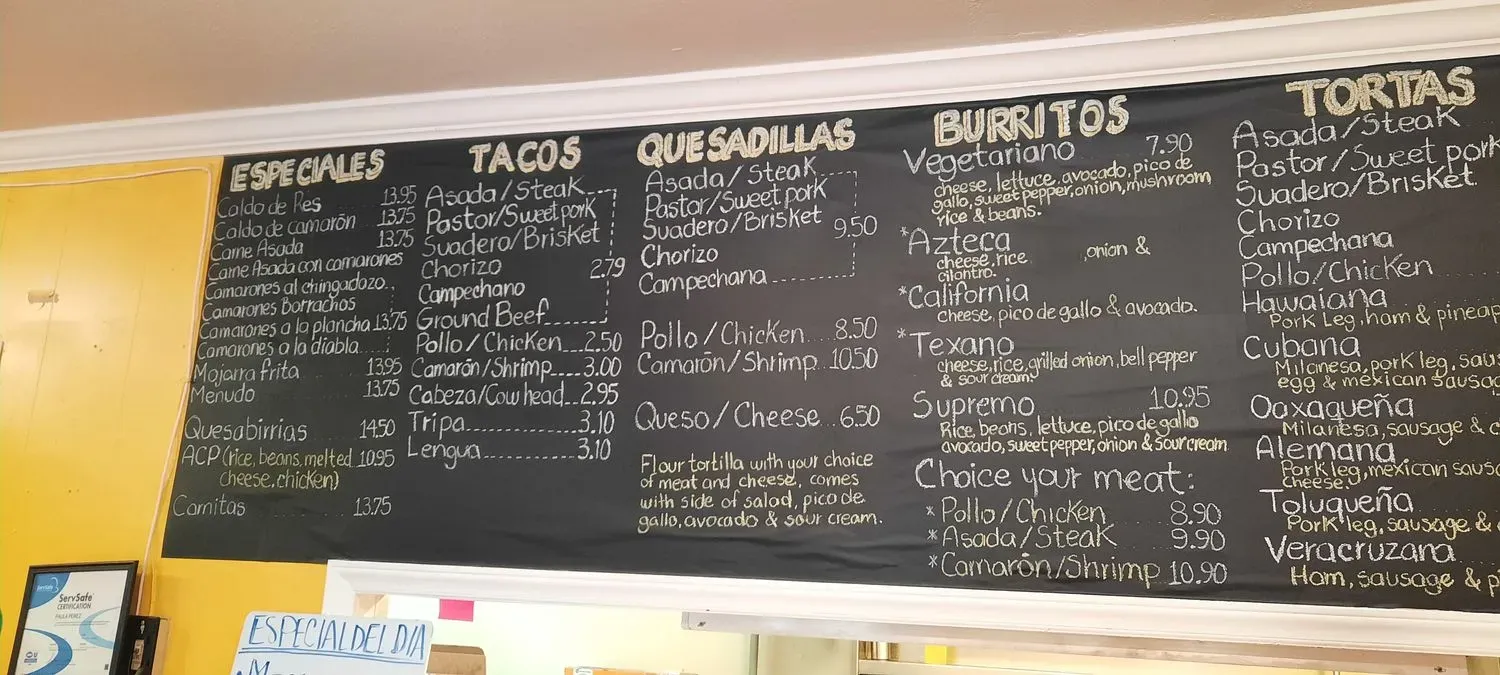 ESPECIALES
Caldo de Res 13.95
Caldo de camarōn 13.75
Carne Asada 13.75
Carne Asada con camarones
Camarones al chingadazo
Camarones Borrachos
Camarones a la plancha 13.75
Camarones a la diabla
Mojarra frita 13.95
Menudo 13.75
Quesabirrias 14.50
ACP (rice, beans, melted 10.95
cheese, chicken)
Carnitas 13.75
TACOS
Asada/Steak
Pastor/Sweet pork
Suadero/Brisket
Chorizo 2.79
Campechano
Ground Beef
Pollo/Chicken 2.50
Camarōn/Shrimp 3.00
Cabeza/Cow head 2.95
Tripa 3.10
Lengua 3.10
QUESADILLAS
Asada/Steak
Pastor/Sweet pork
Suadero/Brisket 9.50
Chorizo
Campechana
Pollo/Chicken 8.50
Camarōn/Shrimp 10.50
Queso/Cheese 6.50
Flour tortilla with your choice
of meat and cheese, comes
with side of salad, pico de
gallo, avocado & sour cream.
BURRITOS
Vegetariano 7.90
cheese, lettuce, avocado, pico de
gallo, sweet pepper, onion, mushroom,
rice & beans.
*Azteca
cheese, rice, onion &
cilantro.
*California
cheese, pico de gallo & avocado.
*Texano
cheese, rice, grilled onion, bell pepper
& sour cream
Supremo 10.95
Rice, beans, lettuce, pico de gallo
avocado, sweet pepper, onion & sour cream
Choice your meat:
* Pollo/Chicken 8.90
* Asada/Steak 9.90
* Camarōn/Shrimp 10.90
TORTAS
Asada/Steak
Pastor/Sweet pork
Suadero/Brisket
Chorizo
Campechana
Pollo/Chicken
Hawaiana
Pork Leg, ham & pineap
Cubana
Milanesa, pork leg, saus
egg & mexican sausag
Oaxaqueña
Milanesa, sausage & c
Alemana
Pork leg, mexican sausa
cheese.
Toluqueña
Pork leg, sausage &
Veracruzana
Ham, sausage & p
ServSafe
ServSafe
CERTIFICATION
PAULA PEREZ
ESPECIAL DEL DIA